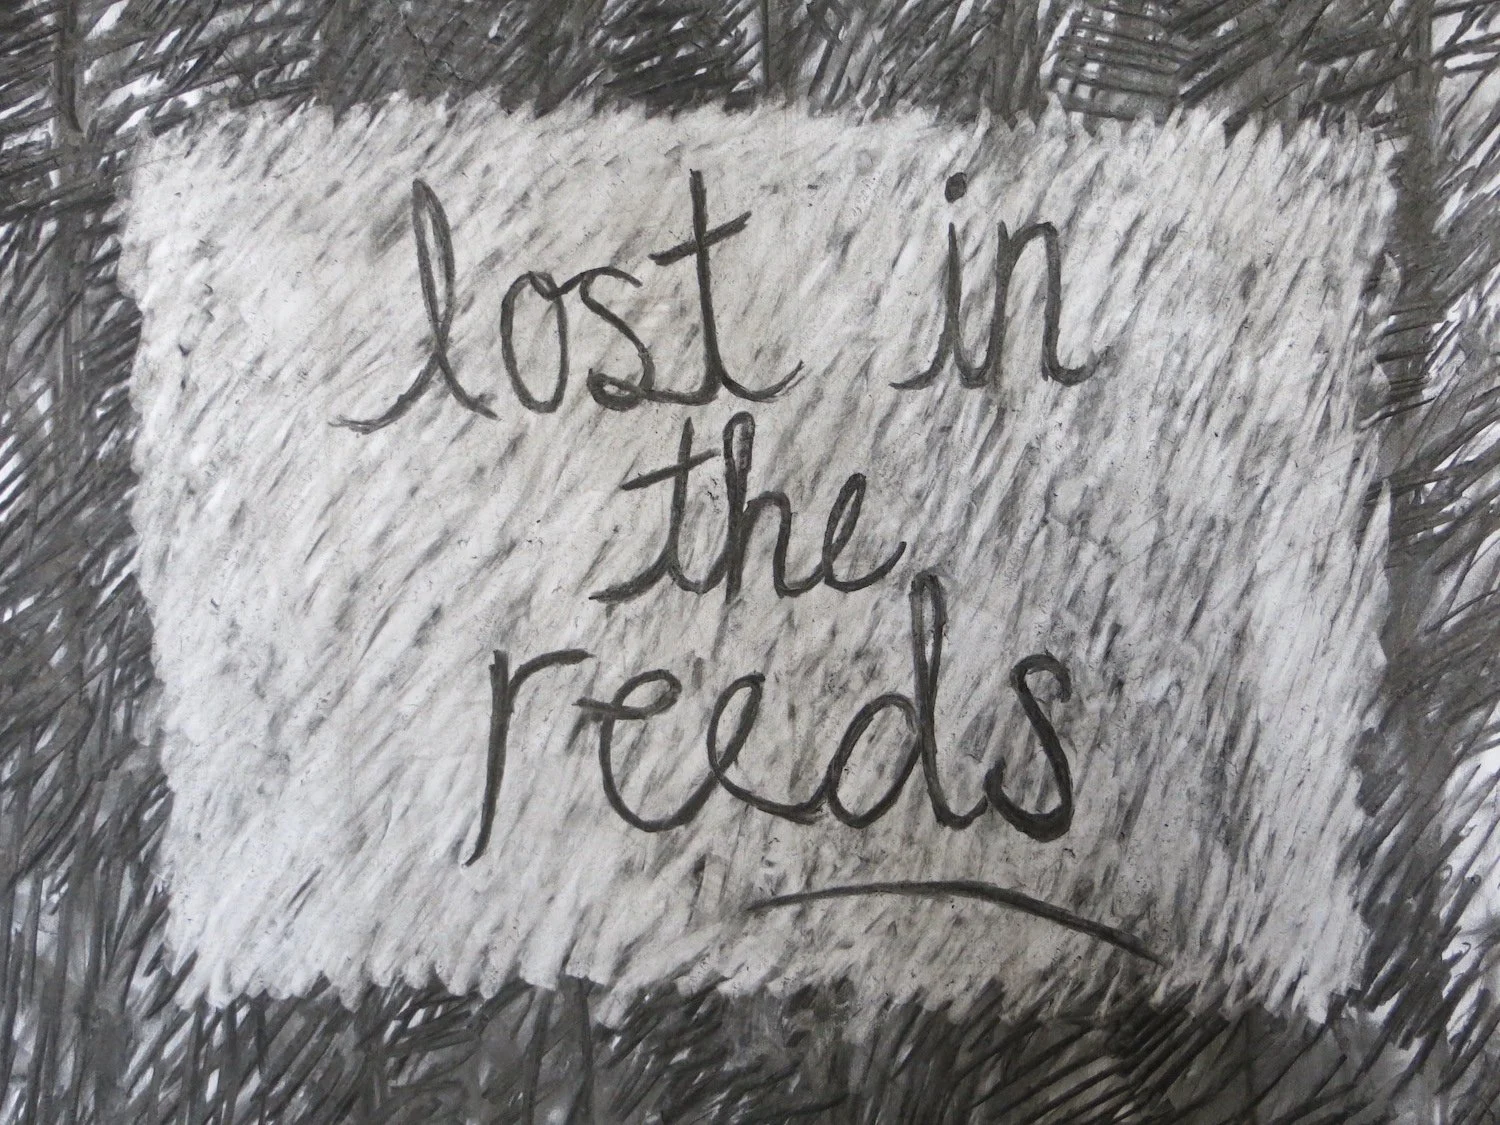 lost in
the
reeds